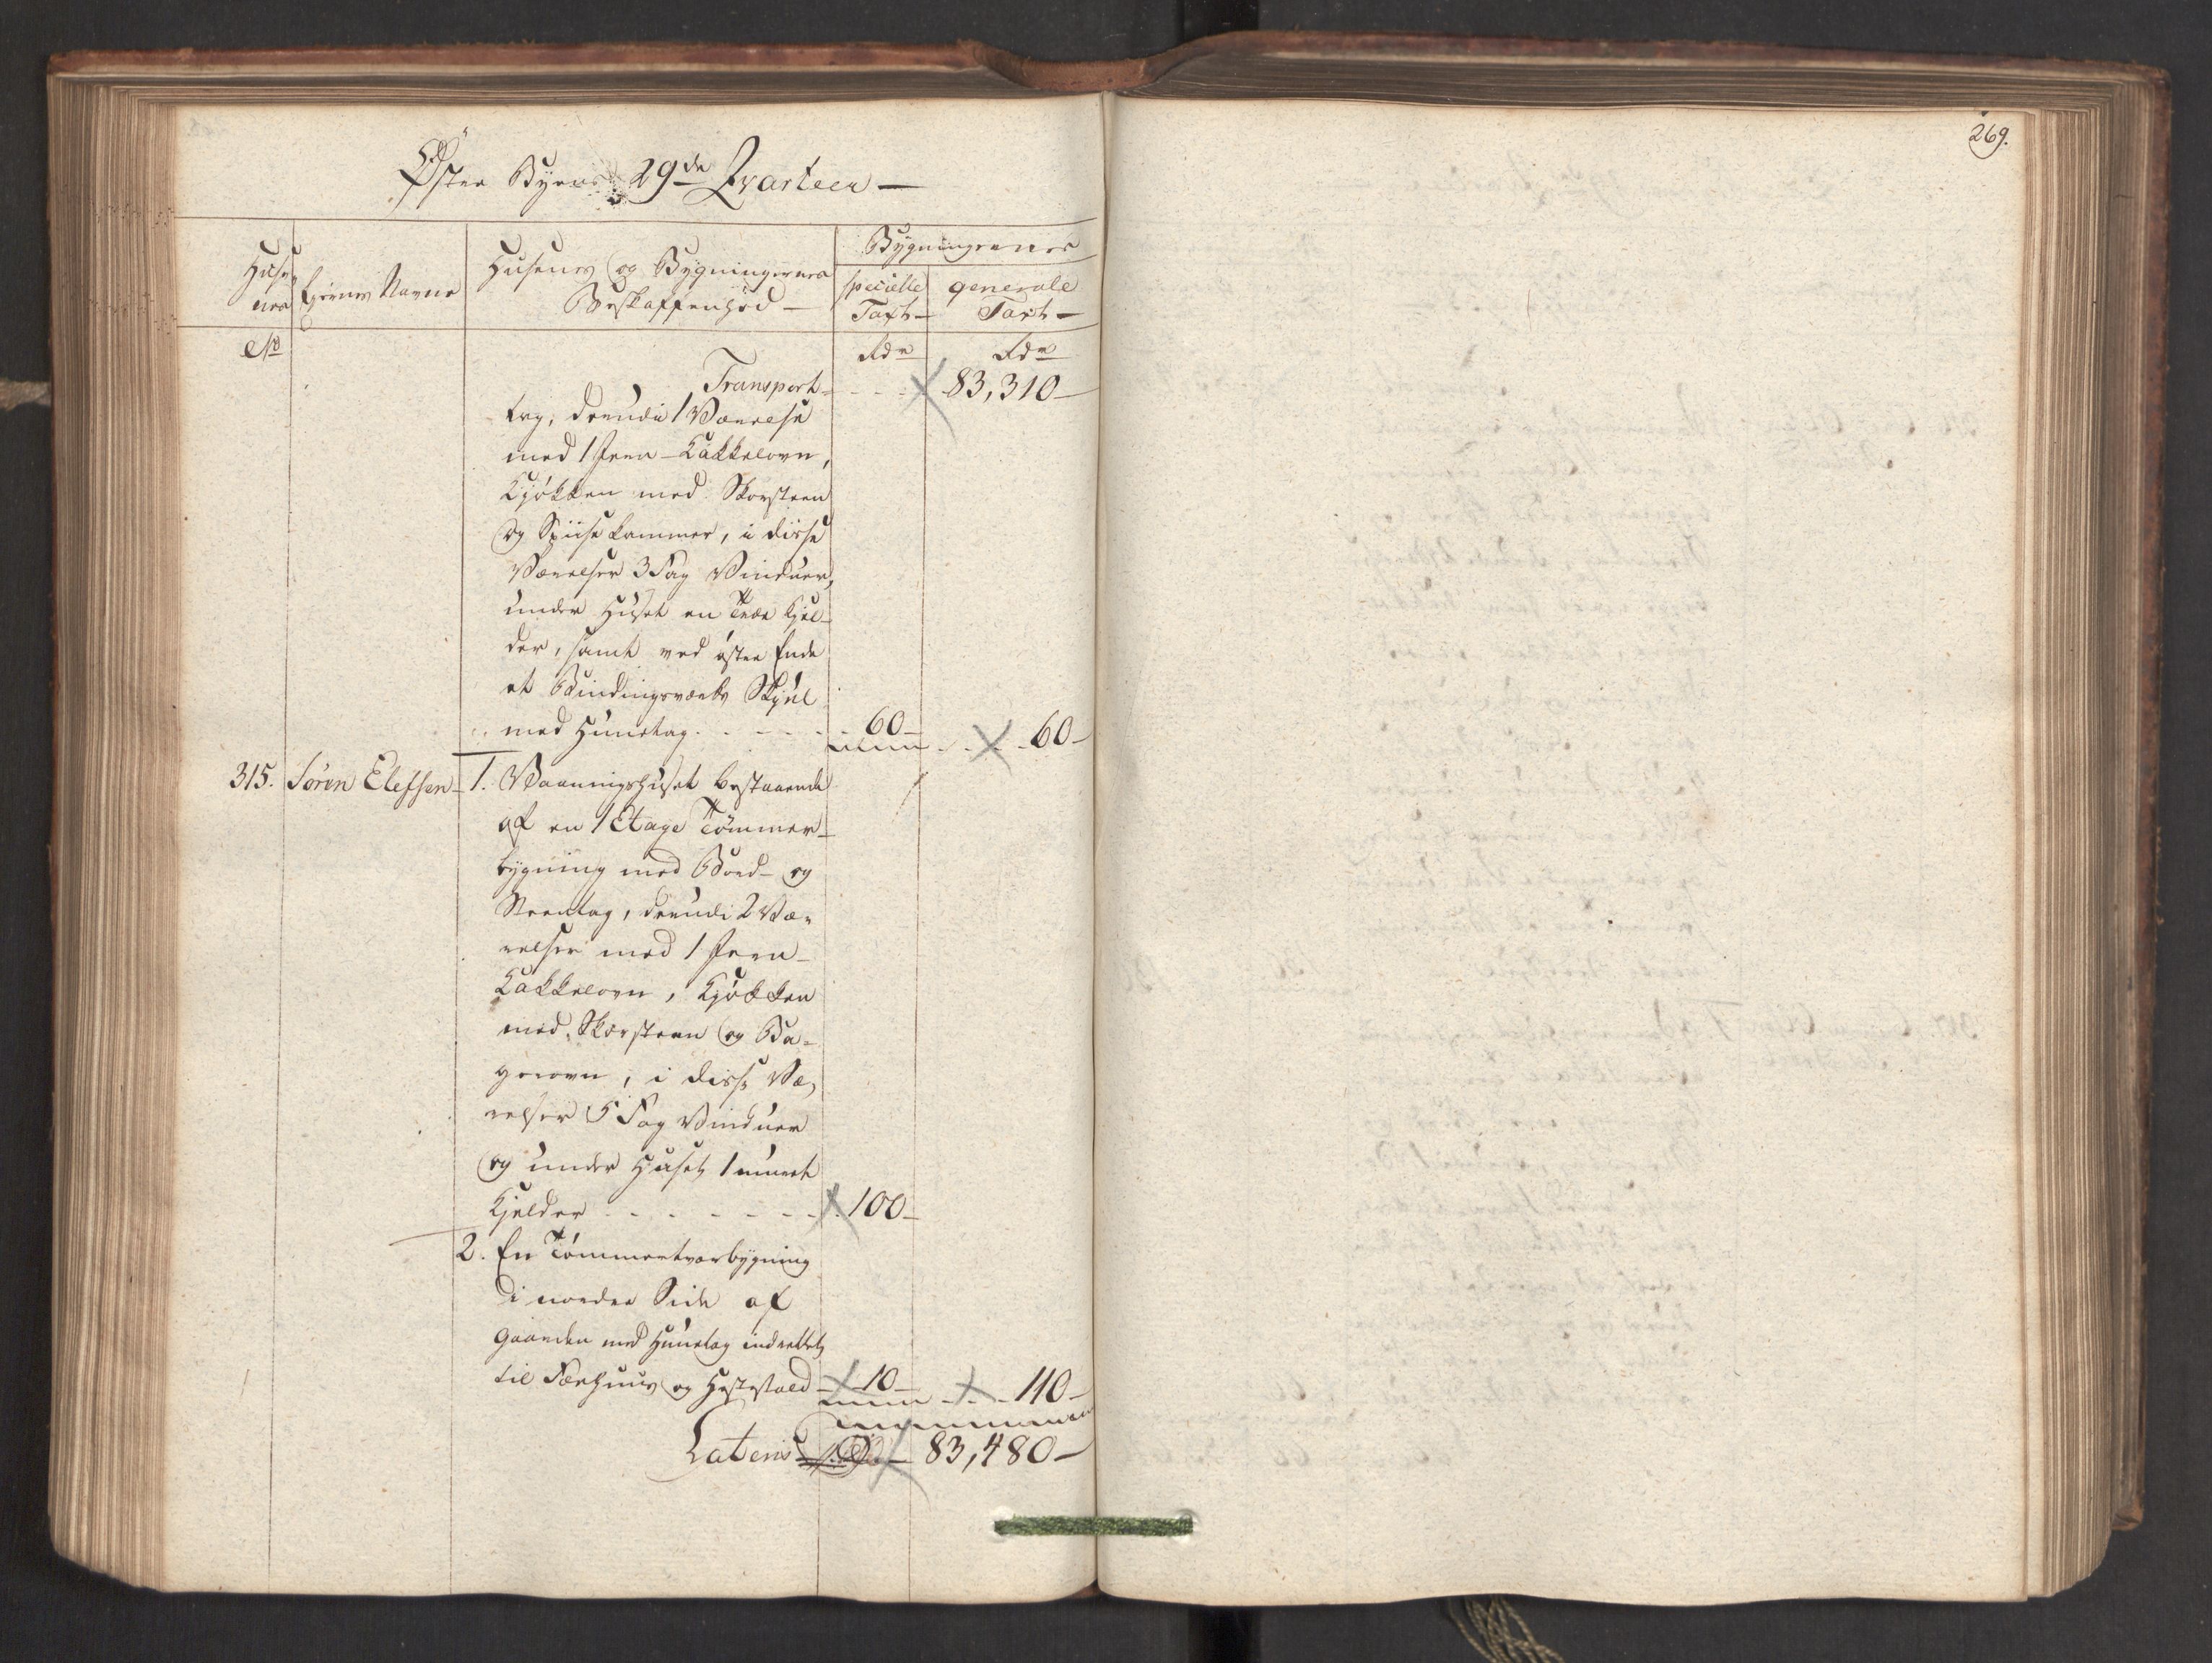 269.
Øster Byens 29de Qvarteer —
Huse
nes
Eiernes Navne
Husenes og Bygningernes
Beskaffenhed —
Bygningernes
specielle
Taxt —
generale
Taxt —
No
Rdr
Rdr
Transport - - - 83,310 —
tag, derudi 1 Værelse
med 1 Jern-Kakkelovn,
Kjøkken med Skorsteen
og Spiisekammer, i disse
Værelser 3 Fag Vinduer,
under Huset en Træe Kjel-
der, samt ved øster Ende
et Bindingsverks Skjul
med Huuetag - - - - 60 — - - 60 —
315. Søren Elefsen — 1. Vaaningshuset bestaaende
af en 1 Etage Tømmer-
bygning med Bord- og
Steentag, derudi 2 Væ-
relser med 1 Jern-
Kakkelovn, Kjøkken
med Skorsteen og Ba-
gerovn, i disse Væ-
relser 5 Fag Vinduer
og under Huset 1 muret
Kjelder - - - - - - - 100 —
2. En Tømmertverbygning
i nordre Side af
Gaarden med Huuetag indrettet
til Færhuus og Hestestald — 10 — - - 110 —
Lateris — 83,480 —